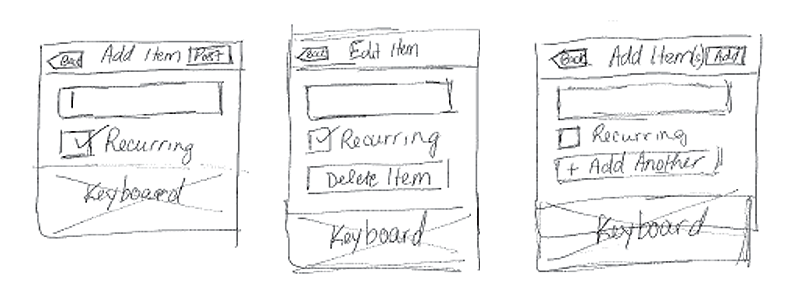 Back Add Item Post
Recurring
Keyboard
Back Edit Item
Recurring
Delete Item
Keyboard
Back Add Item(s) Add
Recurring
+ Add Another
Keyboard